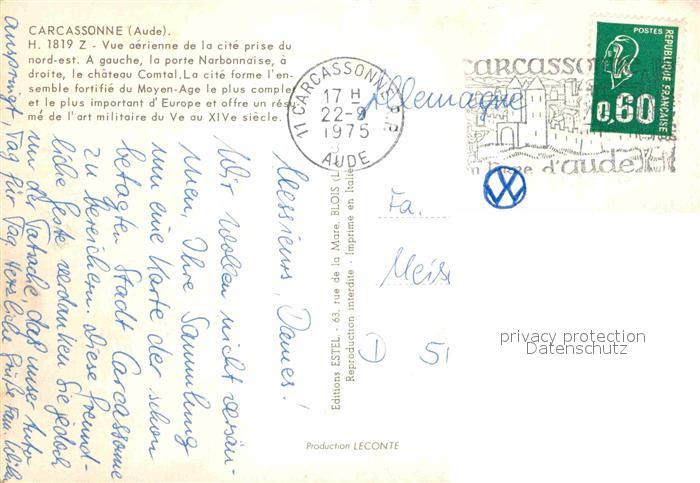 CARCASSONNE (Aude).
H. 1819 Z - Vue aérienne de la cité prise du
nord-est. A gauche, la porte Narbonnaise, à
droite, le château Comtal. La cité forme l'en-
semble fortifié du Moyen-Age le plus complet
et le plus important d'Europe et offre un résu-
mé de l'art militaire du Ve au XIVe siècle.
11 CARCASSONNE R.P.
17 H
22-9
1975
AUDE
carcassonne
d'aude
POSTES
REPUBLIQUE FRANÇAISE
0,60
Allemagne
VW
Messieurs, Dames!
Wir wollen nicht versäu-
men, Ihre Sammlung
um eine Karte der schon
betagten Stadt Carcassonne
zu bereichern. Diese freund-
liche Geste verdanken Sie jedoch
nur der Tatsache, das unser Auto
anspringt, Tag für Tag. Herzliche Grüße Fam.
Editions ESTEL - 63, rue de la Mare, BLOIS
Reproduction interdite - Imprimé en Italie
Fa.
Meis
D 51
privacy protection
Datenschutz
Production LECONTE